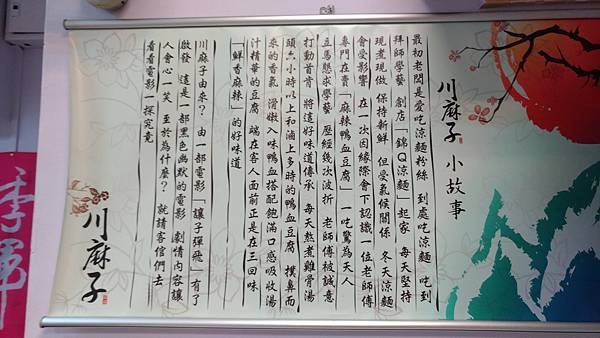 川麻子 小故事
最初老闆是愛吃涼麵粉絲 到處吃涼麵 吃到
拜師學藝 創店「錦Q涼麵」起家 每天堅持
現煮現做 保持新鮮 但受氣候關係 冬天涼麵
會受影響 在一次因緣際會下認識一位老師傅
專門在賣「麻辣鴨血豆腐」 一吃驚為天人
立馬懇求學藝 歷經幾次波折 老師傅被誠意
打動首肯 將這好味道傳承 每天熬煮雞骨湯
頭六小時以上和滷上多時的鴨血豆腐 撲鼻而
來的香氣 滑嫩入味鴨血搭配飽滿口感吸收湯
汁精華的豆腐 端在客人面前正是在三回味
「鮮香麻辣」的好味道
川麻子由來？ 由一部電影「讓子彈飛」有了
啟發 這是一部黑色幽默的電影 劇情內容讓
人會心一笑 至於為什麼？ 就請客倌們去
看看電影一探究竟
川麻子
季